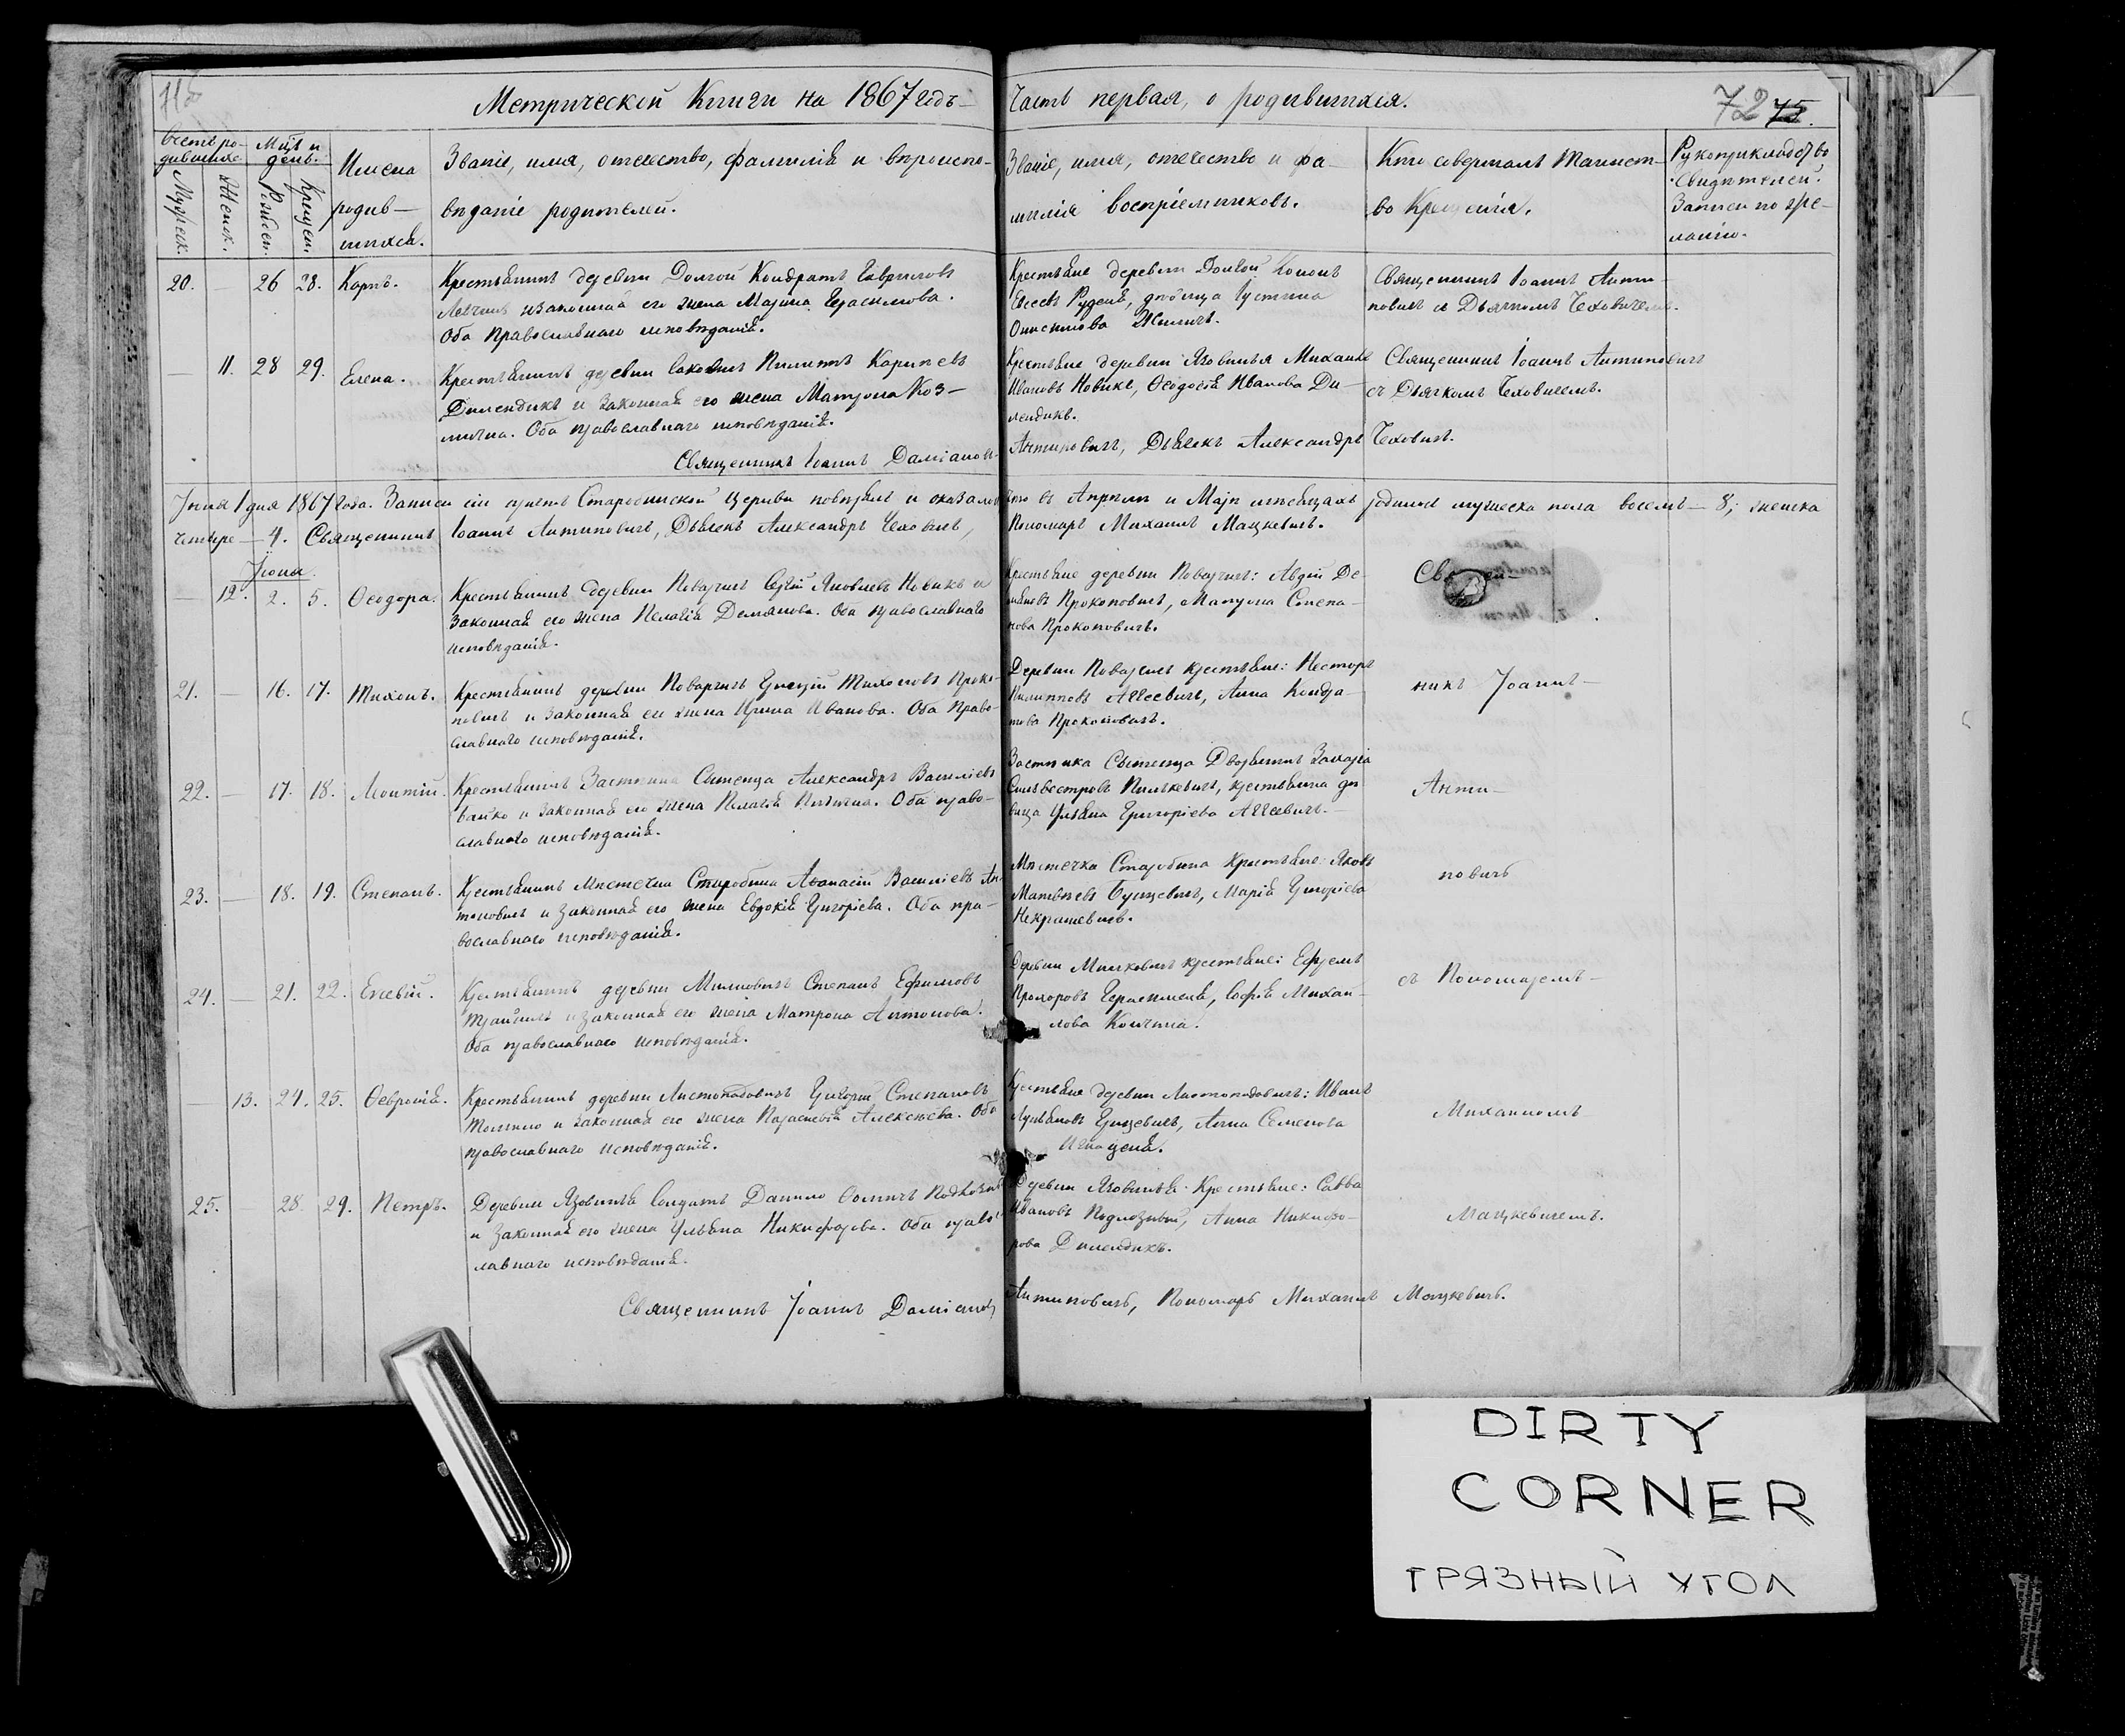 Метрической Книги на 1867 годъ — Часть первая, о родившихся.
72 75.
Счетъ родившихся
Мцъ и день.
Имена родившихся.
Званіе, имя, отечество, фамилія и вѣроисповѣданіе родителей.
Званіе, имя, отечество и фамилія воспріемниковъ.
Кто совершалъ таинство Крещенія.
Рукоприкладство свидѣтелей записи по желанію.
Мужеск.
Женск.
Рожден.
Крещен.
20. — 26 28. Карпъ.
Крестьянинъ деревни Долгой Кондратъ Гавриловъ
и законная его жена Марина Герасимова.
Оба Православнаго исповѣданія.
Крестьяне деревни Долгой Кононъ
Евсеевъ Руденя, дѣвица Іустина
Онисимова Жиличъ.
Священникъ Іоаннъ Анти-
повичъ съ Дьячкомъ Чеховичемъ.
— 11. 28 29. Елена.
Крестьянинъ деревни Саковичъ Пилипъ Карпеевъ
Дилендикъ и законная его жена Матрона Коз-
мична. Оба православнаго исповѣданія.
Крестьяне деревни Язовинья Михаилъ
Ивановъ Новикъ, Ѳеодосія Иванова Ди-
лендикъ.
Священникъ Іоаннъ Антиповичъ
съ Дьячкомъ Чеховичемъ.
Священникъ Іоаннъ Даміановъ Антиповичъ, Дьячекъ Александръ Чеховичъ.
Іюня 1 дня 1867 года. Записи сіи причтъ Старобинской Церкви повѣрялъ и оказалось что въ Апрѣлѣ и Маѣ мѣсяцахъ родилось мужеска пола восемь — 8, женска
четыре — 4. Священникъ Іоаннъ Антиповичъ, Дьячекъ Александръ Чеховичъ, Пономарь Михаилъ Мацкевичъ.
Іюнь.
— 12. 2. 5. Ѳеодора.
Крестьянинъ деревни Поварчичъ Сергій Яковлевъ Новикъ и
законная его жена Пелагія Демьянова. Оба православнаго
исповѣданія.
Крестьяне деревни Поварчичъ: Авдій Де-
мьяновъ Прокоповичъ, Матрона Степа-
нова Прокоповичъ.
21. — 16. 17. Тихонъ.
Крестьянинъ деревни Поварчичъ Григорій Тихоновъ Проко-
повичъ и законная его жена Ирина Иванова. Оба Право-
славнаго исповѣданія.
Деревни Поварчичъ крестьяне: Несторъ
Пилиповъ Авсеевичъ, Анна Кондра-
това Прокоповичъ.
никъ Іоаннъ —
22. — 17. 18. Леонтій.
Крестьянинъ Застѣнка Сытенца Александръ Василіевъ
Бойко и законная его жена Пелагія. Оба право-
славнаго исповѣданія.
Застѣнка Сытенца Дворянинъ Захарія
Сильвестровъ Пилькевичъ, крестьянка дѣ-
вица Ульяна Григоріева Авсеевичъ.
Анти —
23. — 18. 19. Степанъ.
Крестьянинъ Мѣстечка Старобина Аѳанасій Василіевъ Ан-
тоновичъ и законная его жена Евдокія Григоріева. Оба пра-
вославнаго исповѣданія.
Мѣстечка Старобина Крестьяне: Яковъ
Матвѣевъ Бущевичъ, Марія Григоріева
Некрашевичъ.
повичъ
24. — 21. 22. Евсевій.
Крестьянинъ деревни Милковичъ Степанъ Ефимовъ
и законная его жена Матрона Антонова.
Оба православнаго исповѣданія.
Деревни Милковичъ крестьяне: Ефремъ
Прохоровъ Герасименя, Софія Михай-
лова Копчиня.
съ Пономаремъ —
— 13. 24. 25. Ѳевронія.
Крестьянинъ деревни Листопадовичъ Григорій Степановъ
и законная его жена Параскевія Алексѣева. Оба
православнаго исповѣданія.
Крестьяне деревни Листопадовичъ: Иванъ
Лукьяновъ Грицевичъ, Анна Семенова
Игнаценя.
Михаиломъ
25. — 28. 29. Петръ.
Деревни Язовинья Солдатъ Данило Ѳомичъ Подлозный
и законная его жена Ульяна Никифорова. Оба правос-
лавнаго исповѣданія.
Деревни Язовинья Крестьяне: Савва
Ивановъ Подлозный, Анна Никифо-
рова Дилендикъ.
Мацкевичемъ.
Священникъ Іоаннъ Даміановъ Антиповичъ, Пономарь Михаилъ Мацкевичъ.
DIRTY
CORNER
ГРЯЗНЫЙ УГОЛ